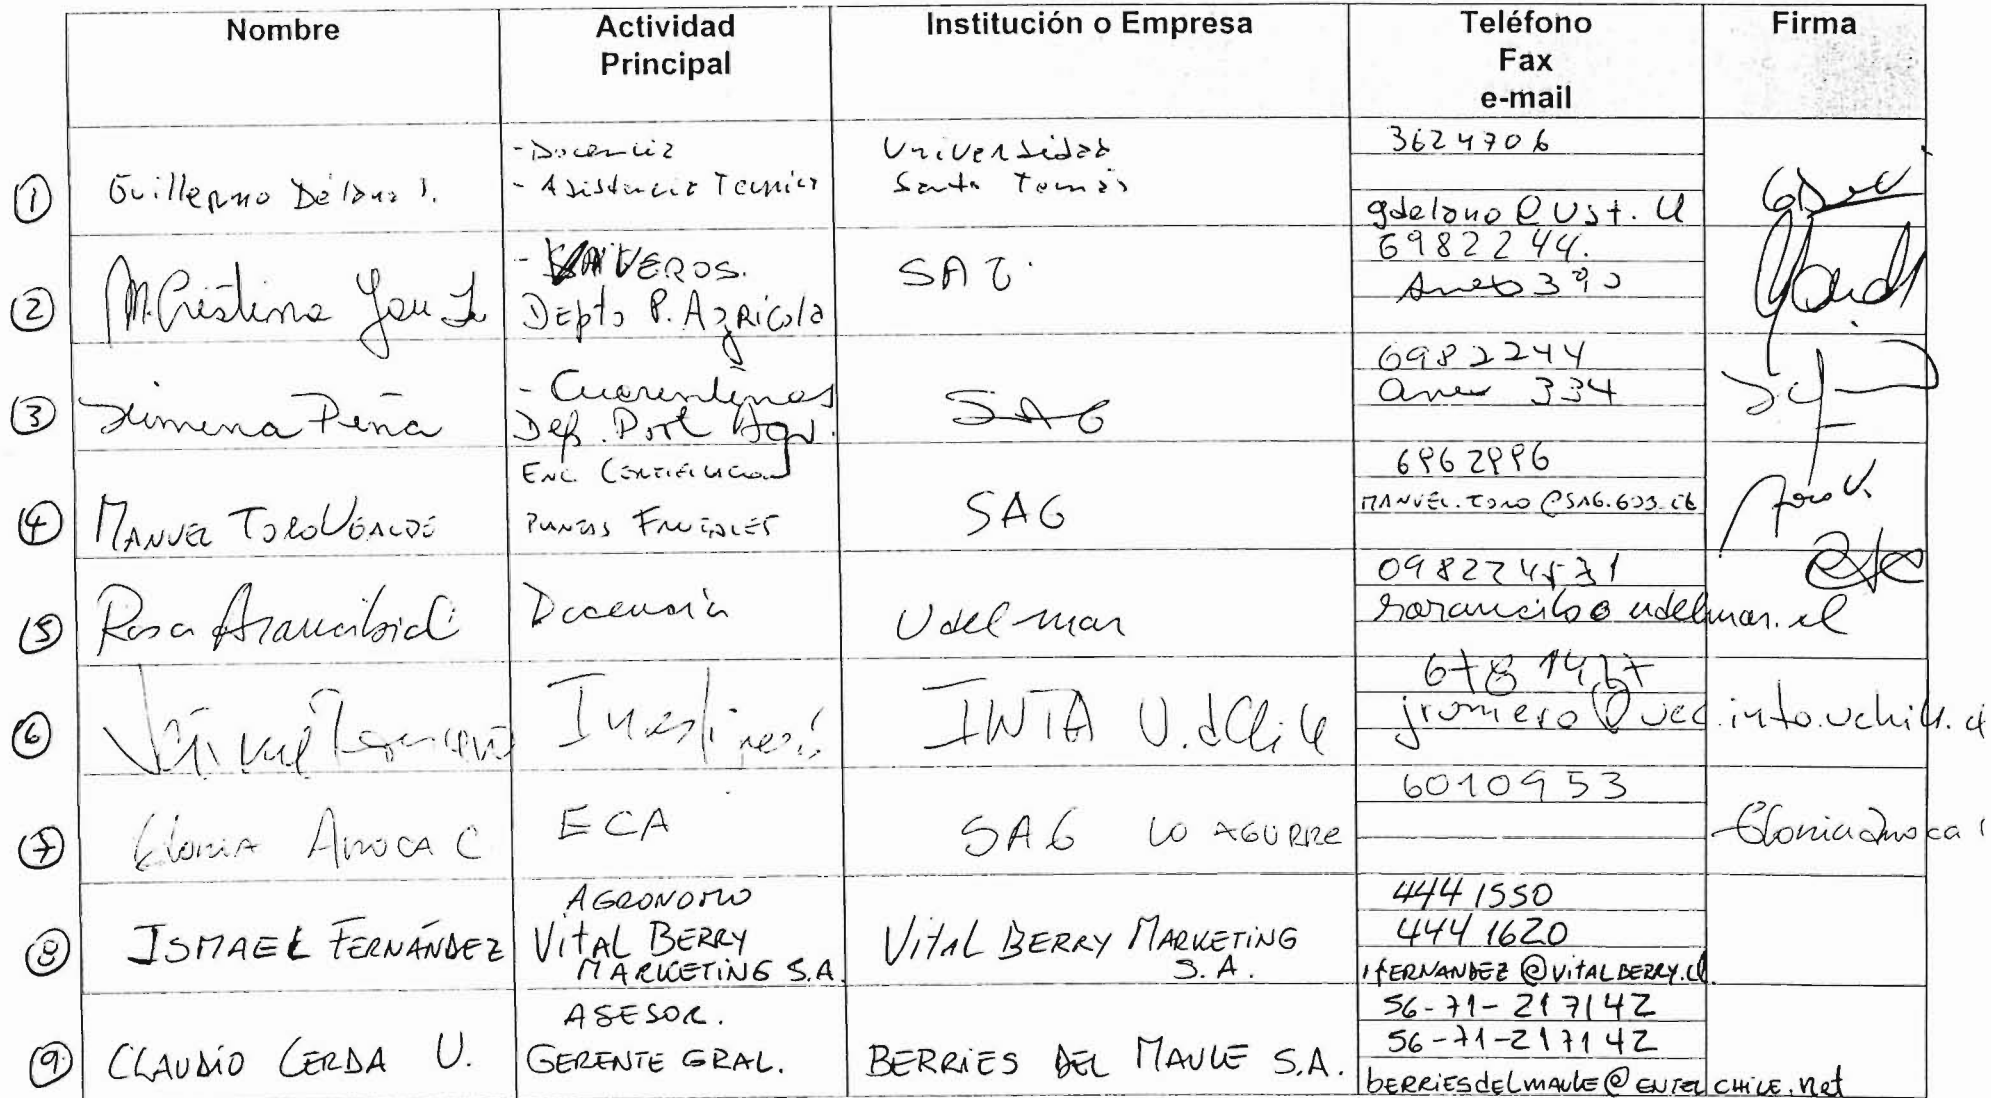 Nombre
Actividad
Principal
Institución o Empresa
Teléfono
Fax
e-mail
Firma
①
Guillermo Délano I.
- Docencia
- Asistencia Tecnica
Universidad
Santo Tomás
3624706
gdelano@ust.cl
②
M. Cristina
- VIVEROS.
Depto P. Agrícola
SAG
6982244.
Anexo
③
Jimena Peña
- Cuarentenas
Dep. Prot Agr.
SAG
6982244
anexo 334
④
MANUEL TORO UGALDE
ENC. CERTIFICACION
PLANTAS FRUTALES
SAG
6962996
MANUEL.TORO@SAG.GOB.CL
Toro U.
⑤
Rosa Arancibia C
Docencia
U del mar
098224531
rarancibia@udelmar.cl
⑥
INTA U. de Chile
6781427
jromero@uec.inta.uchile.cl
⑦
Gloria Anoca C
ECA
SAG LO AGUIRRE
6010953
Gloria Anoca
⑧
ISMAEL FERNÁNDEZ
AGRONOMO
VITAL BERRY
MARKETING S.A.
VITAL BERRY MARKETING
S.A.
444 1550
444 1620
IFERNANDEZ@VITALBERRY.CL
⑨
CLAUDIO CERDA U.
ASESOR.
GERENTE GRAL.
BERRIES DEL MAULE S.A.
56-71-217142
56-71-217142
berriesdelmaule@entelchile.net